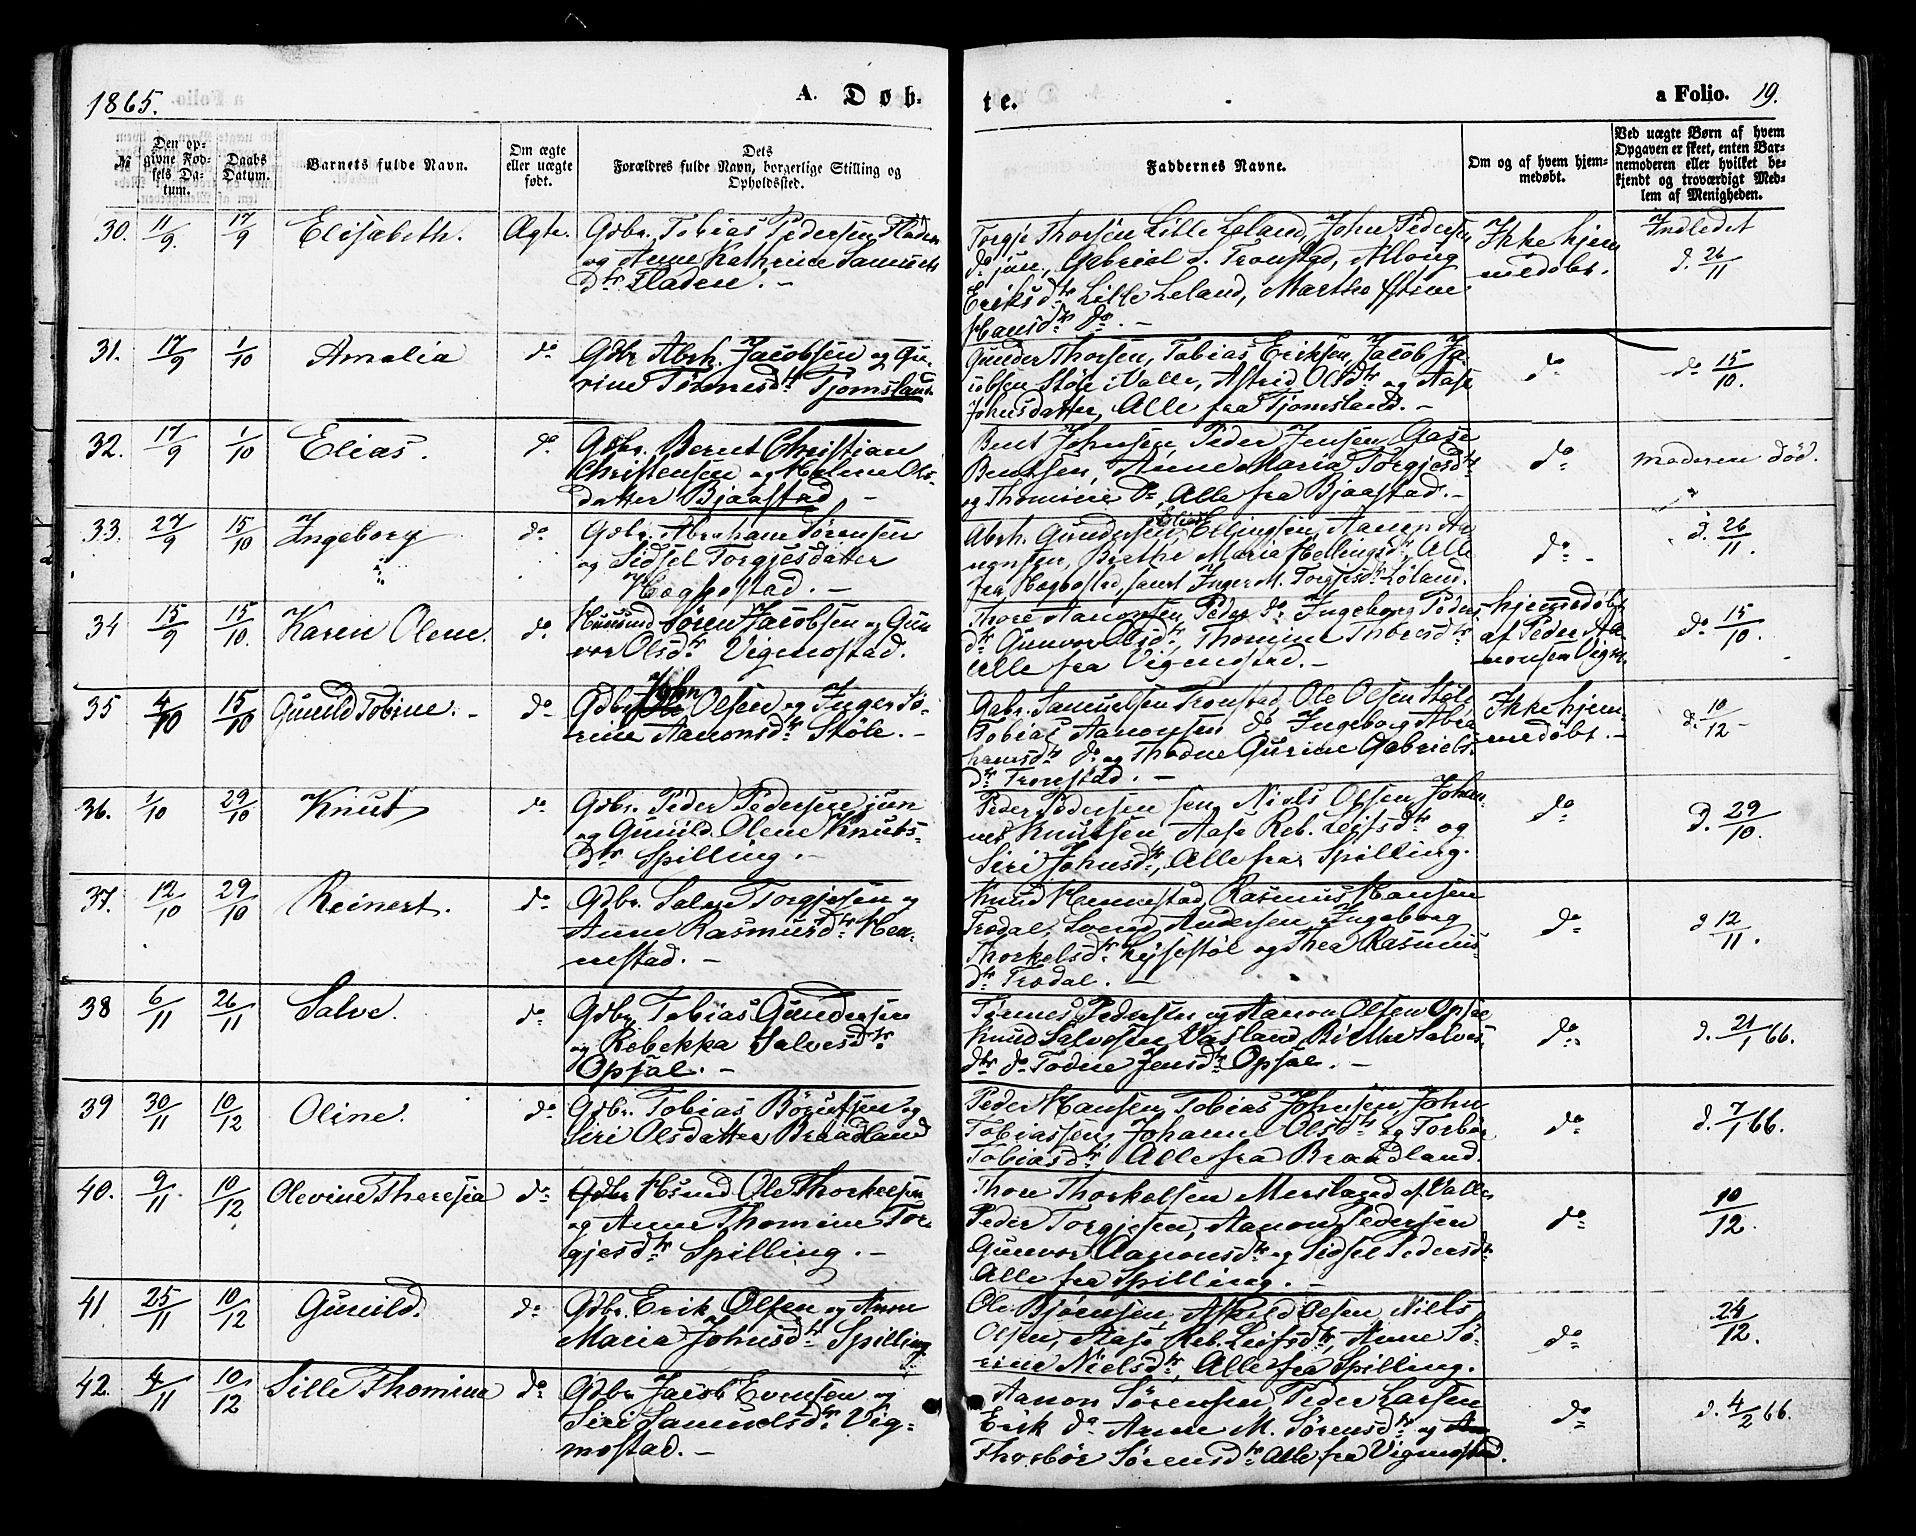 1865.
A. Døb-
te.
a Folio. 19.
№
Den op-
givne Fød-
sels Da-
tum.
Daabs
Datum.
Barnets fulde Navn.
Om ægte
eller uægte
født.
Dets
Forældres fulde Navn, borgerlige Stilling og
Opholdssted.
Faddernes Navne.
Om og af hvem hjem-
medøbt.
Ved uægte Børn af hvem
Opgaven er skeet, enten Bar-
nemoderen eller hvilket be-
kjendt og troværdigt Med-
lem af Menigheden.
30. 11/9. 17/9 Elisabeth. Ægte.
Gdbr. Tobias Pedersen Fladen
og Anne Kathrine Samuels
dtr Fladen. –
Torgje Thorsen Lille Leland, John Pedersen
do jun, Gabriel S. Tronstad,
Eriksdtr Lille Leland, Marthe Stine
Hansdtr do. –
Ikke hjem
medøbt.
Indledet
d. 26/11
31. 17/9 1/10 Amalia do
Gdbr Abrh. Jacobsen og Gu-
rine Tønnesdtr Tjomsland.
Gunder Thorsen, Tobias Eriksen, Jacob Ja-
cobsen Støle i Valle, Astrid Olsdtr og Aase
Johnsdatter, Alle fra Tjomsland. –
do
do 15/10.
32. 17/9 1/10 Elias. do
Gdbr. Bernt Christian
Christensen og Malene Ols-
datter Bjaastad –
Bent Johnsen, Peder Jensen, Aase
Bentsen, Anne Maria Torgjesdtr
og Thomine do, Alle fra Bjaastad. –
do
Moderen død.
33. 27/9 15/10 Ingeborg do
Gdbr. Abraham Sørensen
og Sidsel Torgjesdatter
Hægbostad. –
Abrh. Gundersen, Elias Ellingsen, Aanen Aa-
nensen, Birthe Maria Hellingsdtr, Alle
fra Hægbostad, samt Inger M. Torgjesdtr Løland.
do –
d. 26/11.
34 15/9 15/10. Karen Olene. do
Huusmd Søren Jacobsen og Gun
vor Olsdtr Vigmostad.
Thore Aanonsen, Peder do Ingeborg Peders
dtr Gunvor Olsdtr, Thomine Thoresdtr
Alle fra Vigmostad. –
hjemmedøbt
af Peder Aa-
nonsen Vigm.
do 15/10.
35 4/10 15/10 Gunild Tobine. – do –
Gdbr John Olsen og Inger To-
rine Aanonsdtr Støle. –
Gabr. Samuelsen Tronstad, Ole Olsen Støle
Tobias Aanonsen do, Ingeborg Abra
hamsdtr do og Thodne Gurine Gabriels-
dtr Tronstad. –
Ikke hjem-
medøbt. –
d. 10/12 –
36. 1/10 29/10 Knut do
Gdbr. Peder Pedersen jun
og Gunild Olene Knuts-
dtr Spilling. –
Peder Pedersen sen, Niels Olsen, Johan-
nes Knutsen, Aase Reb. Leifsdtr og
Siri Johnsdtr, Alle fra Spilling.
do
d. 29/10.
37. 12/10 29/10 Reinert. do
Gdbr. Salve Torgjesen og
Anne Rasmusdtr Hen-
nestad. –
Knud Hennestad, Rasmus Hansen
Trædal, Svend Andersen, Ingeborg
Thorkelsdtr Lysestøl og Thea Rasmus
dtr Trædal. –
do
d 12/11.
38 6/11 26/11 Salve. do
Gdbr Tobias Gundersen
og Rebekka Salvesdtr
Opsal. –
Tønnes Pedersen og Aanon Olsen Opsal
Knud Salvesen Vasland, Birthe Salves
dtr do Todne Jensdtr Opsal. –
do
d. 21/1 66.
39 30/11 10/12 Oline. do
Gdbr. Tobias Børutsen og
Siri Olsdatter Braadland
Peder Hansen, Tobias Johnsen, John
Tobiassen, Johanne Olsdtr og Torbor
Tobiasdtr Alle fra Braadland.
do
d. 7/1 66.
40. 9/11 10/12 Olevine Theresia do
Gdbr Husmd Ole Thorkelsen
og Anne Thomine Tor-
gjesdtr Spilling. –
Thore Thorkelsen Mersland af Valle,
Peder Torgjesen, Aanon Pedersen
Gunvor Aanonsdtr og Sidsel Pedersdtr
Alle fra Spilling. –
do
10/12.
41 25/11 10/12 Gunild. do
Gdbr Erik Olsen og Anne
Maria Johnsdtr Spilling
Ole Bjørnsen, Olsen Niels
Olsen, Aase Reb. Leifsdtr, Anne So-
rine Nielsdtr, Alle fra Spilling.
do
24/12.
42. 4/11 10/12 Sille Thomine do
Gdbr Jacob Evensen og
Siri Samuelsdtr Vig-
mostad. –
Aanon Sørensen, Peder Larsen
Erik do Anne M. Sørensdtr og
Thorbør Sørensdtr Alle fra Vigmostad.
do
d. 4/2 66.